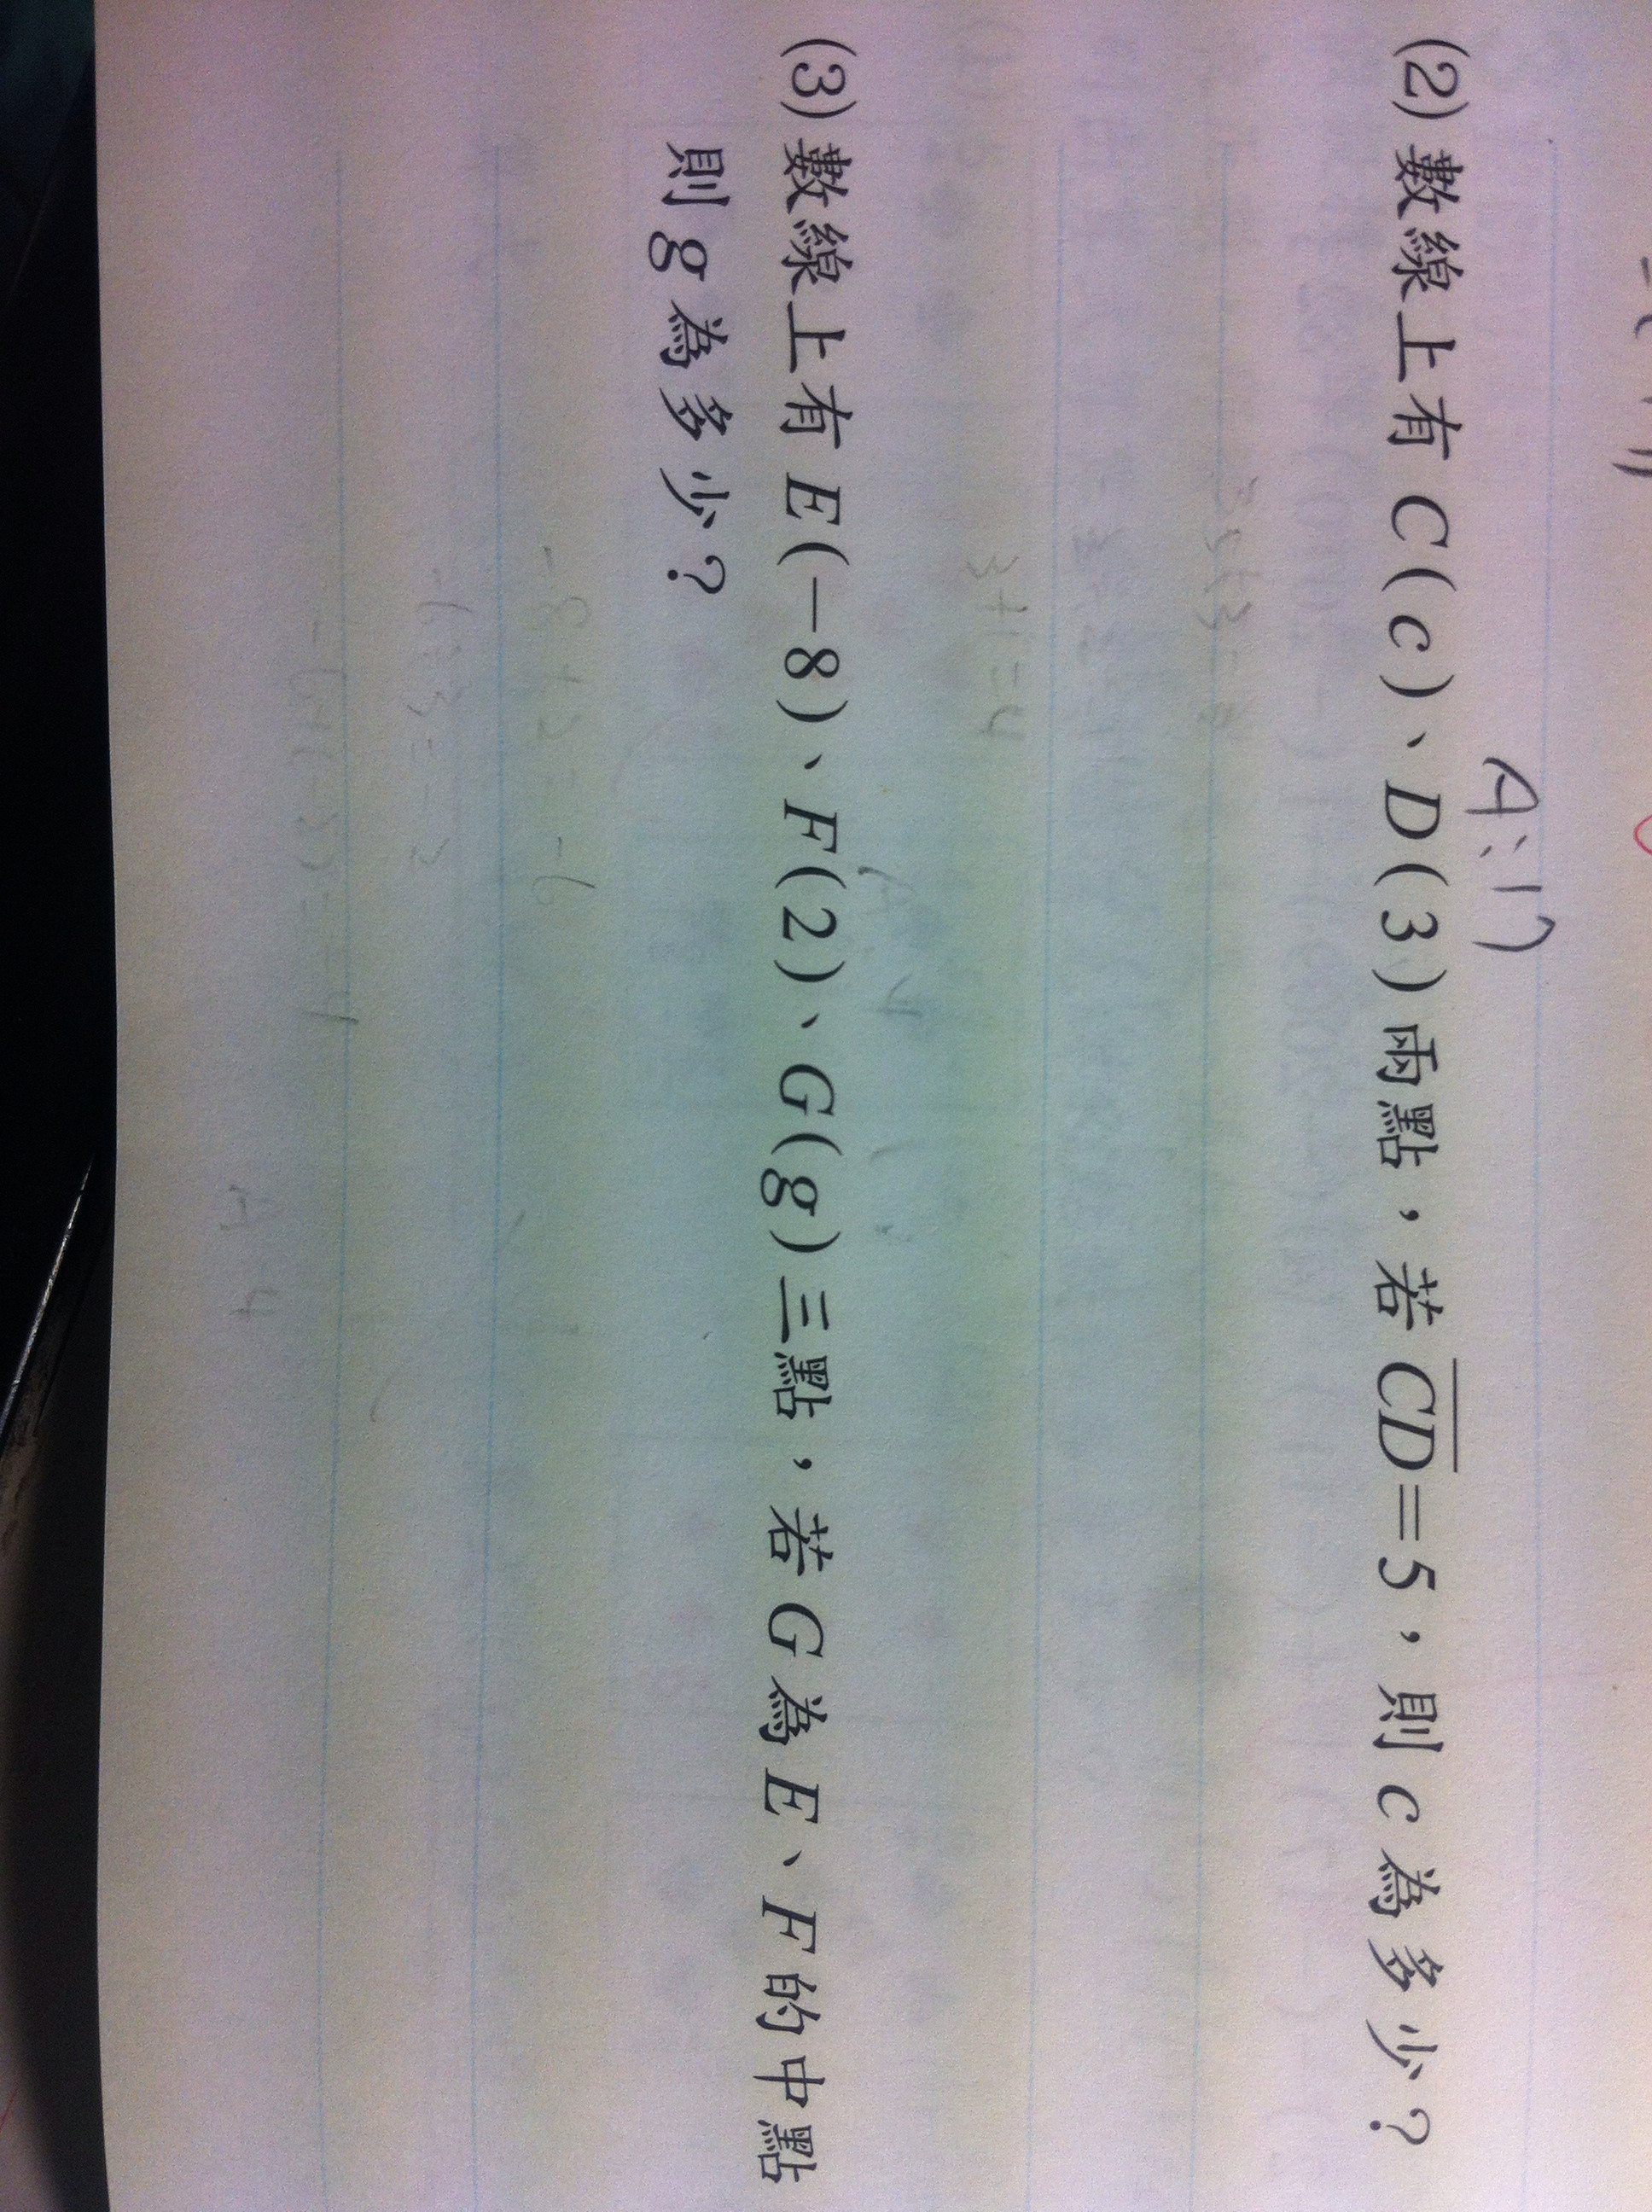 A:17
(2) 數線上有 C(c)、D(3)兩點,若 CD=5,則 c 為多少?
3+1=4
(3) 數線上有 E(-8)、F(2)、G(g)三點,若 G 為 E、F 的中點
則 g 為多少?
-8+2=-6